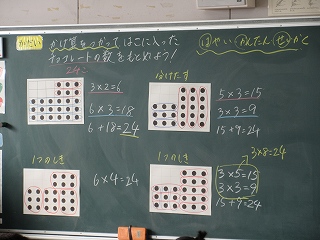 かだい かけ算をつかって はこに入った
チョコレートの数をもとめよう！
はやい かんたん せいかく
24こ
3×2=6
6×3=18
6+18=24
わけたす
5×3=15
3×3=9
15+9=24
1つのしき
6×4=24
1つのしき
3×8=24
3×5=15
3×3=9
15+9=24